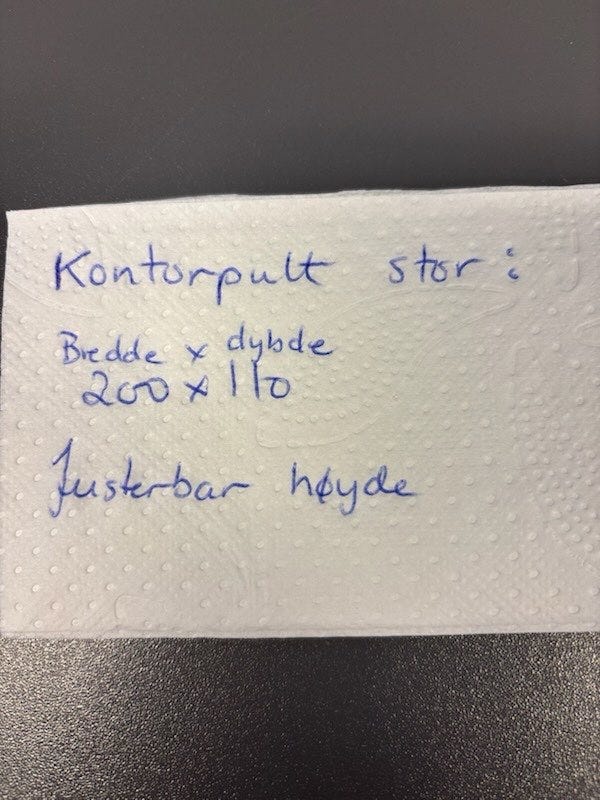 Kontorpult stor:
Bredde x dybde
200 x 110
Justerbar høyde